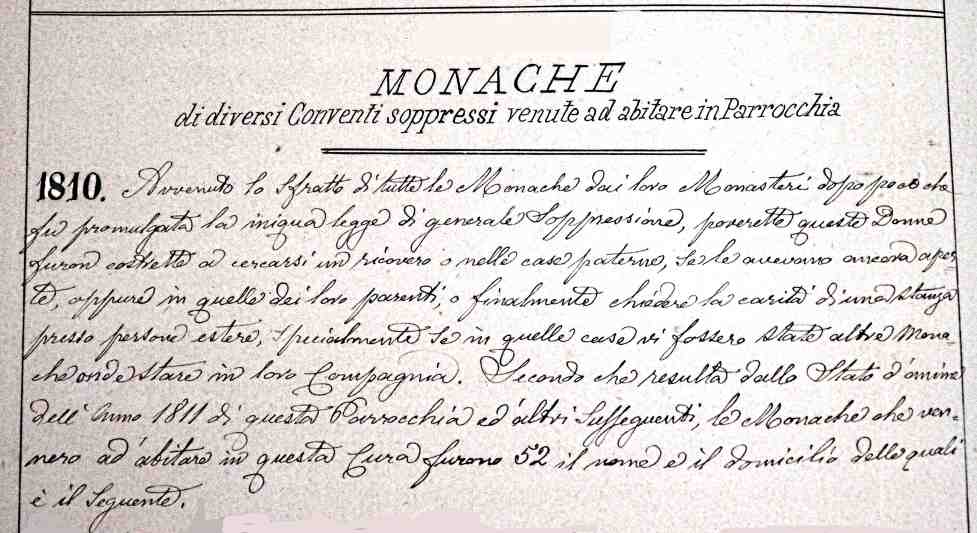 MONACHE
di diversi Conventi soppressi venute ad abitare in Parrocchia
1810. Avvenuto lo sfratto di tutte le Monache dai loro Monasteri dopo poco che
fu promulgata la iniqua legge di generale Soppressione, poverette queste Donne
furon costrette a cercarsi un ricovero o nelle case paterne, se le avevano ancora aper
te, oppure in quelle dei loro parenti, o finalmente chiedere la carità di una stanza
presso persone estere, specialmente se in quelle case vi fossero state altre Mona-
che onde stare in loro Compagnia. Secondo che resulta dallo Stato d'anime
dell'Anno 1811 di questa Parrocchia ed altri susseguenti, le Monache che ven=
nero ad abitare in questa Cura furono 52 il nome e il domicilio delle quali
è il seguente.